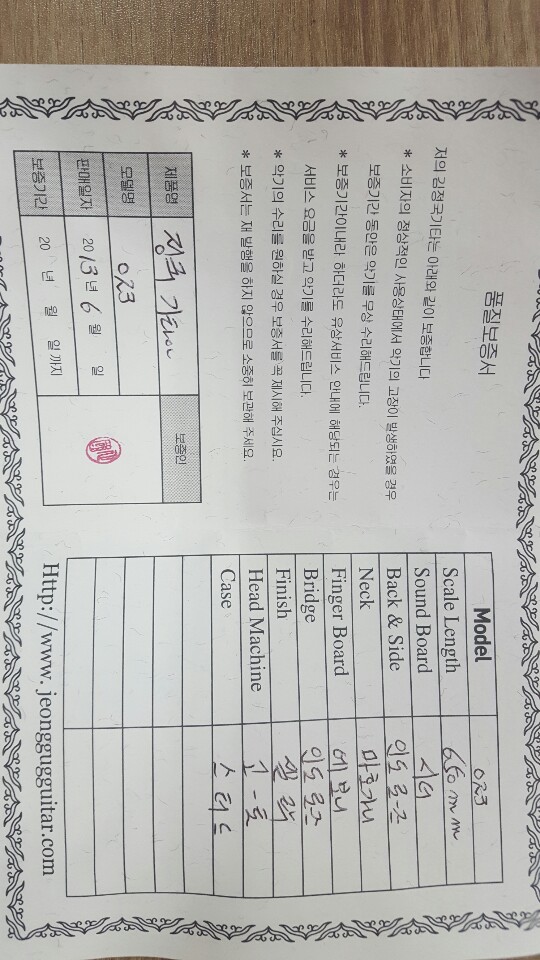 품질보증서
저의 김정국기타는 아래와 같이 보증합니다
* 소비자의 정상적인 사용상태에서 악기의 고장이 발생하였을 경우
보증기간 동안은 악기를 무상 수리해드립니다.
* 보증기간이내라 하더라도 유상서비스 안내에 해당되는 경우는
서비스 요금을 받고 악기를 수리해드립니다.
* 악기의 수리를 원하실 경우 보증서를 꼭 제시해 주십시요.
* 보증서는 재 발행을 하지 않으므로 소중히 보관해 주세요.
제품명 정국 기타 보증인
모델명 023
판매일자 2013년 6월 일
보증기간 20 년 월 일 까지
Model 023
Scale Length 650mm
Sound Board 시더
Back & Side 인도 로즈
Neck 마호가니
Finger Board 에보니
Bridge 인도 로즈
Finish 쉘락
Head Machine 고-토
Case
Http://www.jeonggugguitar.com